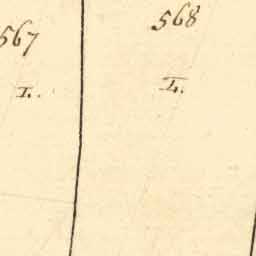 567
568
I.
I.